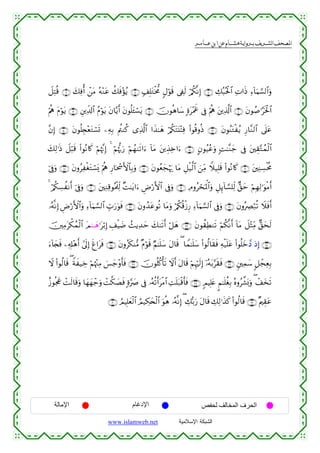 المصحف الشريف برواية هشام عن ابن عامر
وَٱلسَّمَآءِ ذَاتِ ٱلْحُبُكِ ۝ إِنَّكُمْ لَفِى قَوْلٍ مُّخْتَلِفٍ ۝ يُؤْفَكُ عَنْهُ مَنْ أُفِكَ ۝ قُتِلَ
ٱلْخَرَّٰصُونَ ۝ ٱلَّذِينَ هُمْ فِى غَمْرَةٍ سَاهُونَ ۝ يَسْـَٔلُونَ أَيَّانَ يَوْمُ ٱلدِّينِ ۝ يَوْمَ هُمْ
عَلَى ٱلنَّارِ يُفْتَنُونَ ۝ ذُوقُوا۟ فِتْنَتَكُمْ هَٰذَا ٱلَّذِى كُنتُم بِهِۦ تَسْتَعْجِلُونَ ۝ إِنَّ
ٱلْمُتَّقِينَ فِى جَنَّٰتٍ وَعُيُونٍ ۝ ءَاخِذِينَ مَآ ءَاتَىٰهُمْ رَبُّهُمْ ۚ إِنَّهُمْ كَانُوا۟ قَبْلَ ذَٰلِكَ
مُحْسِنِينَ ۝ كَانُوا۟ قَلِيلًا مِّنَ ٱلَّيْلِ مَا يَهْجَعُونَ ۝ وَبِٱلْأَسْحَارِ هُمْ يَسْتَغْفِرُونَ ۝ وَفِىٓ
أَمْوَٰلِهِمْ حَقٌّ لِّلسَّآئِلِ وَٱلْمَحْرُومِ ۝ وَفِى ٱلْأَرْضِ ءَايَٰتٌ لِّلْمُوقِنِينَ ۝ وَفِىٓ أَنفُسِكُمْ ۚ
أَفَلَا تُبْصِرُونَ ۝ وَفِى ٱلسَّمَآءِ رِزْقُكُمْ وَمَا تُوعَدُونَ ۝ فَوَرَبِّ ٱلسَّمَآءِ وَٱلْأَرْضِ إِنَّهُۥ
لَحَقٌّ مِّثْلَ مَآ أَنَّكُمْ تَنطِقُونَ ۝ هَلْ أَتَىٰكَ حَدِيثُ ضَيْفِ إِبْرَٰهَٰمَ ٱلْمُكْرَمِينَ ۝
إِذ دَّخَلُوا۟ عَلَيْهِ فَقَالُوا۟ سَلَٰمًا ۖ قَالَ سَلَٰمٌ قَوْمٌ مُّنكَرُونَ ۝ فَرَاغَ إِلَىٰٓ أَهْلِهِۦ فَجَآءَ
بِعِجْلٍ سَمِينٍ ۝ فَقَرَّبَهُۥٓ إِلَيْهِمْ قَالَ أَلَا تَأْكُلُونَ ۝ فَأَوْجَسَ مِنْهُمْ خِيفَةً ۖ قَالُوا۟ لَا
تَخَفْ ۖ وَبَشَّرُوهُ بِغُلَٰمٍ عَلِيمٍ ۝ فَأَقْبَلَتِ ٱمْرَأَتُهُۥ فِى صَرَّةٍ فَصَكَّتْ وَجْهَهَا وَقَالَتْ عَجُوزٌ
عَقِيمٌ ۝ قَالُوا۟ كَذَٰلِكِ قَالَ رَبُّكِ ۖ إِنَّهُۥ هُوَ ٱلْحَكِيمُ ٱلْعَلِيمُ ۝
الحرف المخالف لحفص
الإدغام
الإمالة
الشبكة الإسلامية www.islamweb.net